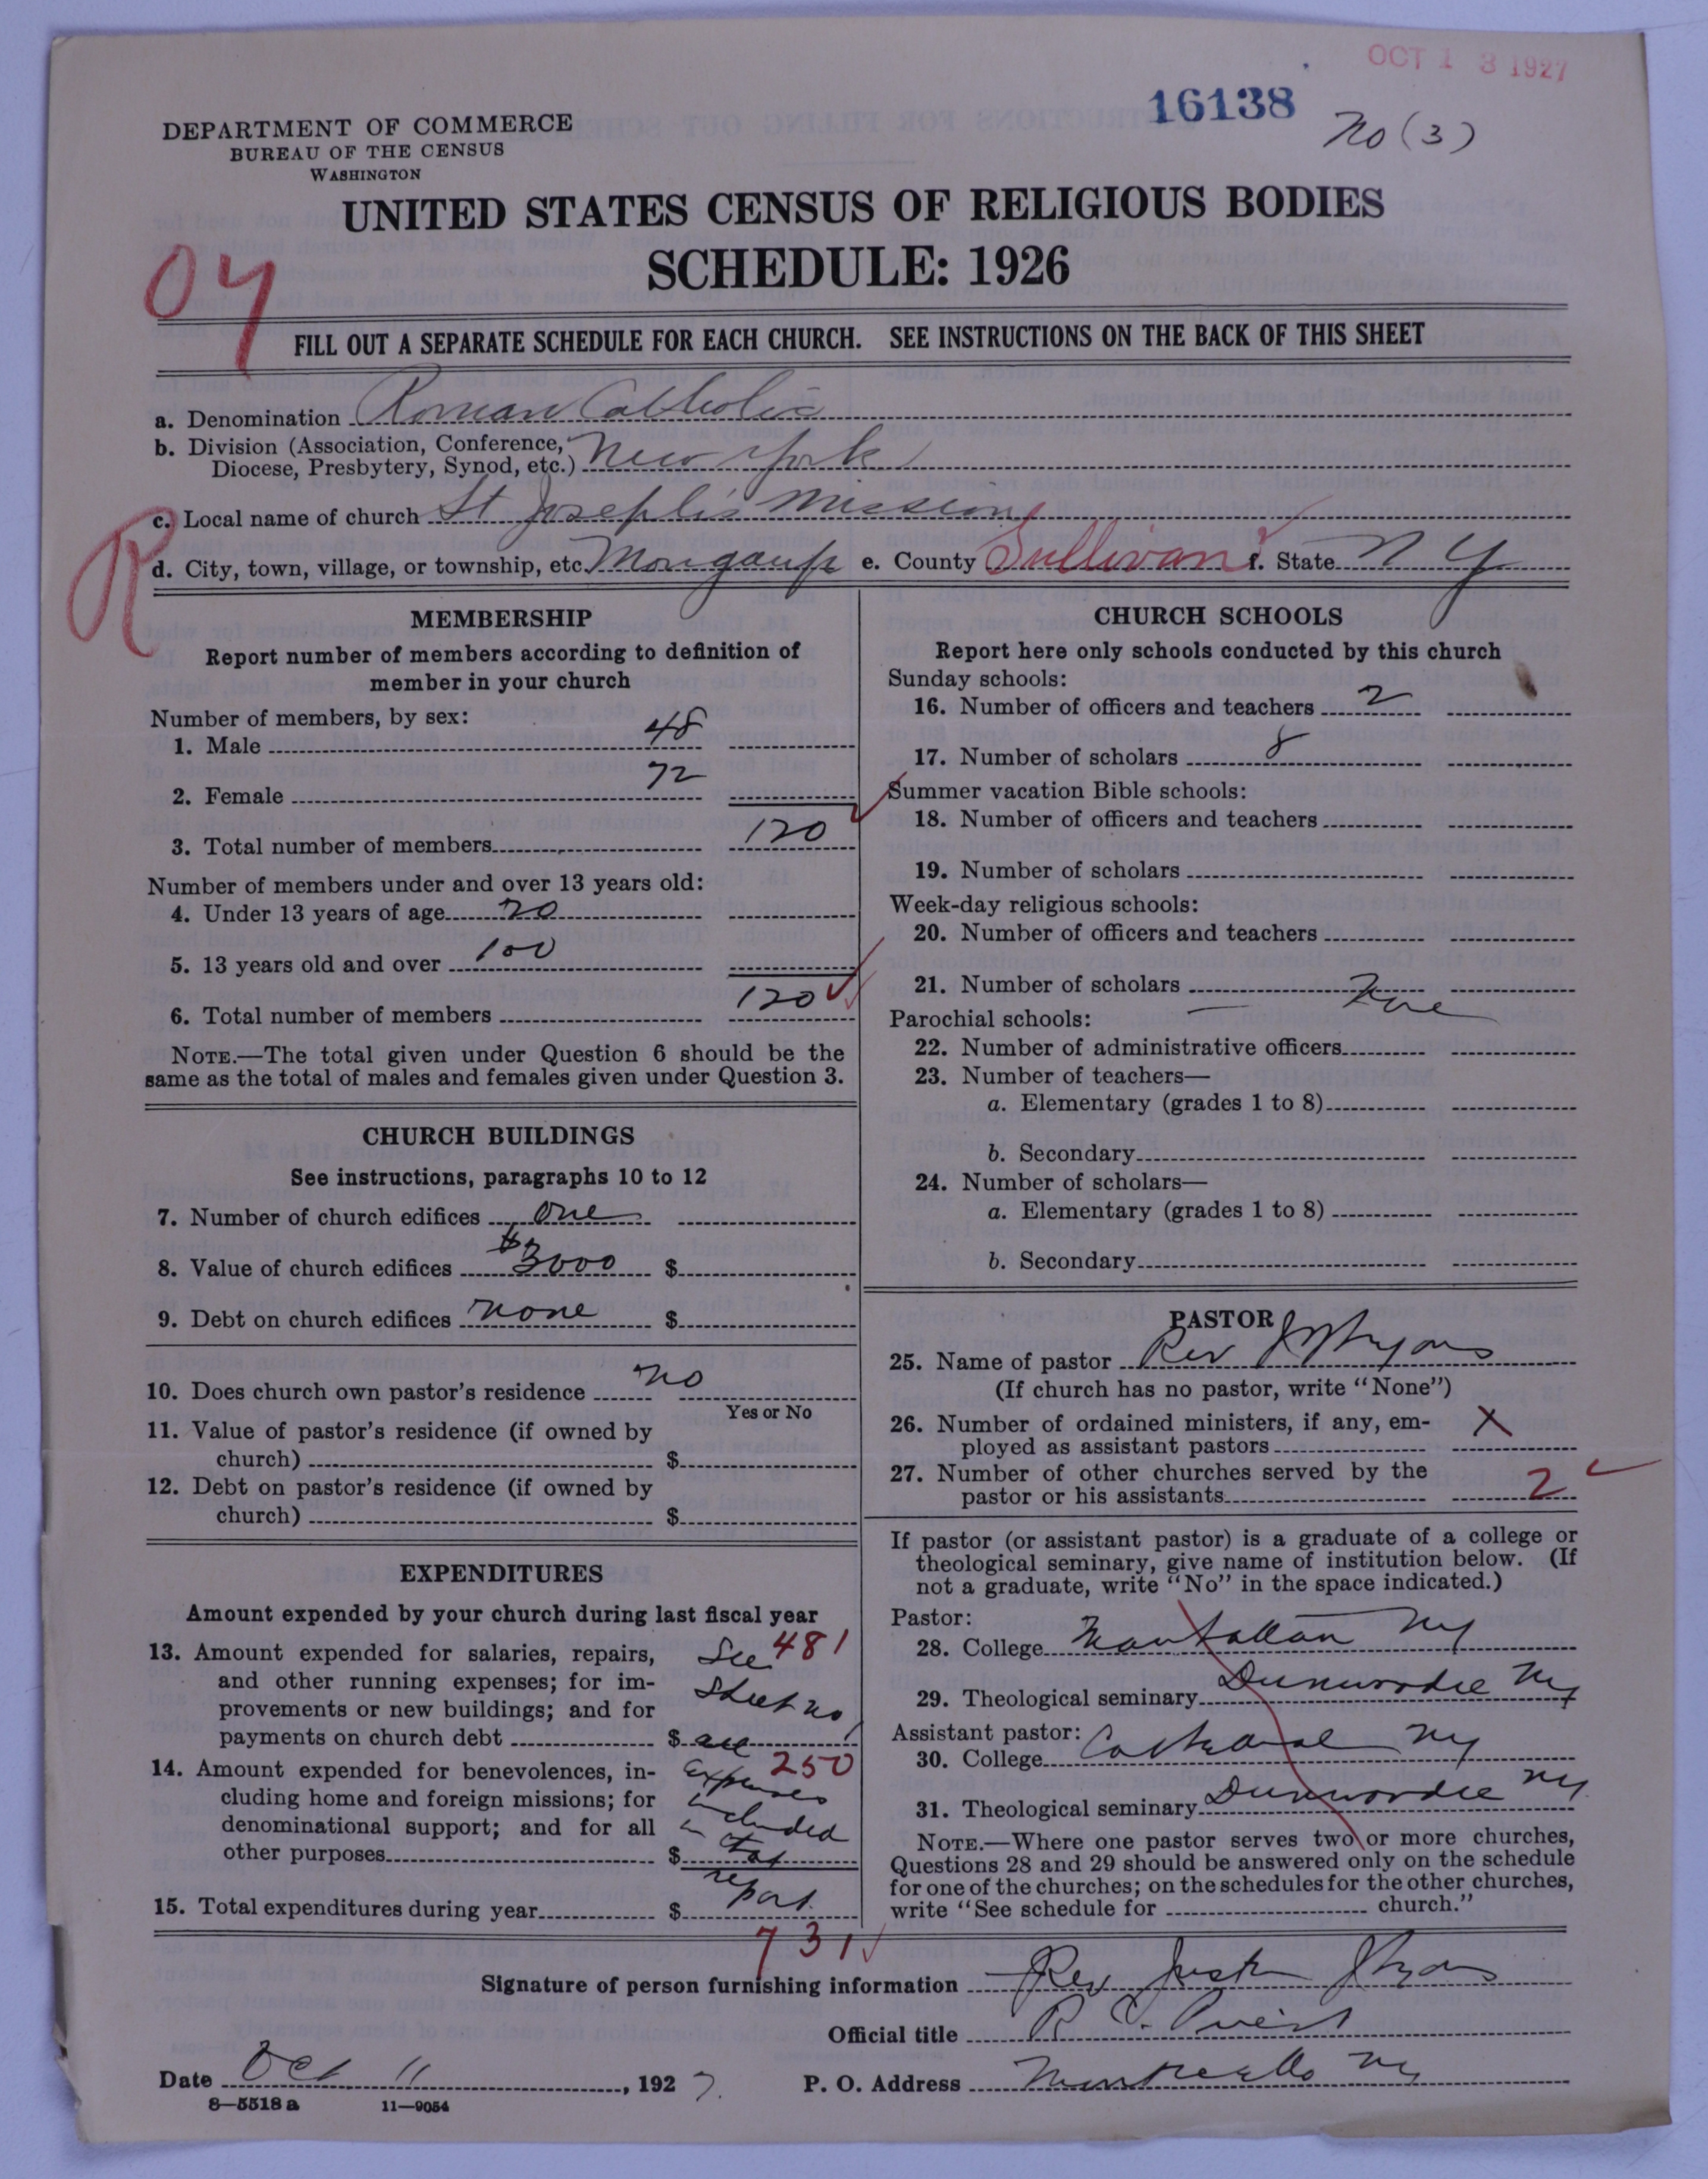 OCT 13 1927
16138
No (3)
DEPARTMENT OF COMMERCE
BUREAU OF THE CENSUS
WASHINGTON
UNITED STATES CENSUS OF RELIGIOUS BODIES
SCHEDULE: 1926
04
FILL OUT A SEPARATE SCHEDULE FOR EACH CHURCH. SEE INSTRUCTIONS ON THE BACK OF THIS SHEET
a. Denomination Roman Catholic
b. Division (Association, Conference,
Diocese, Presbytery, Synod, etc.) New York
c. Local name of church St Joseph's Mission
R
d. City, town, village, or township, etc. Mongaup e. County Sullivan f. State N Y
MEMBERSHIP
Report number of members according to definition of
member in your church
Number of members, by sex:
1. Male 48
2. Female 72
3. Total number of members 120
Number of members under and over 13 years old:
4. Under 13 years of age 20
5. 13 years old and over 100
6. Total number of members 120
NOTE.—The total given under Question 6 should be the
same as the total of males and females given under Question 3.
CHURCH BUILDINGS
See instructions, paragraphs 10 to 12
7. Number of church edifices One
8. Value of church edifices $3000 $
9. Debt on church edifices None $
10. Does church own pastor's residence No
Yes or No
11. Value of pastor's residence (if owned by
church) $
12. Debt on pastor's residence (if owned by
church) $
EXPENDITURES
Amount expended by your church during last fiscal year
13. Amount expended for salaries, repairs, See 481
and other running expenses; for im-
provements or new buildings; and for Sheet no 1
payments on church debt $ all
14. Amount expended for benevolences, in- Expenses 250
cluding home and foreign missions; for included
denominational support; and for all in
other purposes $ that
report
15. Total expenditures during year $
731
CHURCH SCHOOLS
Report here only schools conducted by this church
Sunday schools:
16. Number of officers and teachers 2
17. Number of scholars 8
Summer vacation Bible schools:
18. Number of officers and teachers
19. Number of scholars
Week-day religious schools:
20. Number of officers and teachers
21. Number of scholars
Parochial schools:
22. Number of administrative officers
23. Number of teachers—
a. Elementary (grades 1 to 8)
b. Secondary
24. Number of scholars—
a. Elementary (grades 1 to 8)
b. Secondary
PASTOR
25. Name of pastor Rev
(If church has no pastor, write "None")
26. Number of ordained ministers, if any, em- X
ployed as assistant pastors
27. Number of other churches served by the
pastor or his assistants 2
If pastor (or assistant pastor) is a graduate of a college or
theological seminary, give name of institution below. (If
not a graduate, write "No" in the space indicated.)
Pastor:
28. College Manhattan NY
29. Theological seminary Dunwoodie NY
Assistant pastor:
30. College Cathedral NY
31. Theological seminary Dunwoodie NY
NOTE.—Where one pastor serves two or more churches,
Questions 28 and 29 should be answered only on the schedule
for one of the churches; on the schedules for the other churches,
write "See schedule for church."
Signature of person furnishing information Rev
Official title R C. Priest
Date Oct 11, 1927. P. O. Address Monticello NY
8—5518 a 11—9054